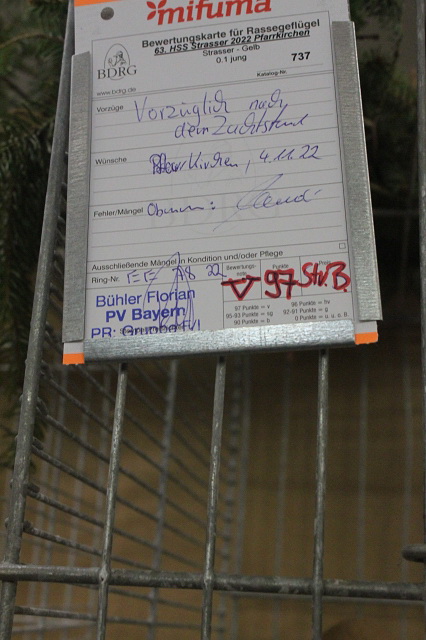 mifuma
Bewertungskarte für Rassegeflügel
63. HSS Strasser 2022 Pfarrkirchen
Strasser - Gelb
0.1 jung
737
Katalog-Nr.
BDRG
www.bdrg.de
Vorzüge
Vorzüglich nach
dem Zuchtstand
Wünsche
Pfarrkirchen, 4.11.22
Fehler/Mängel
Obmann:
Ausschließende Mängel in Kondition und/oder Pflege
Ring-Nr.
22
Bewertungs-
note
Punkte
Preis
V 97 StrB
Bühler Florian
PV Bayern
PR:
97 Punkte = v
96 Punkte = hv
93-95 Punkte = sg
92-91 Punkte = g
90 Punkte = b
0 Punkte = u, o, B